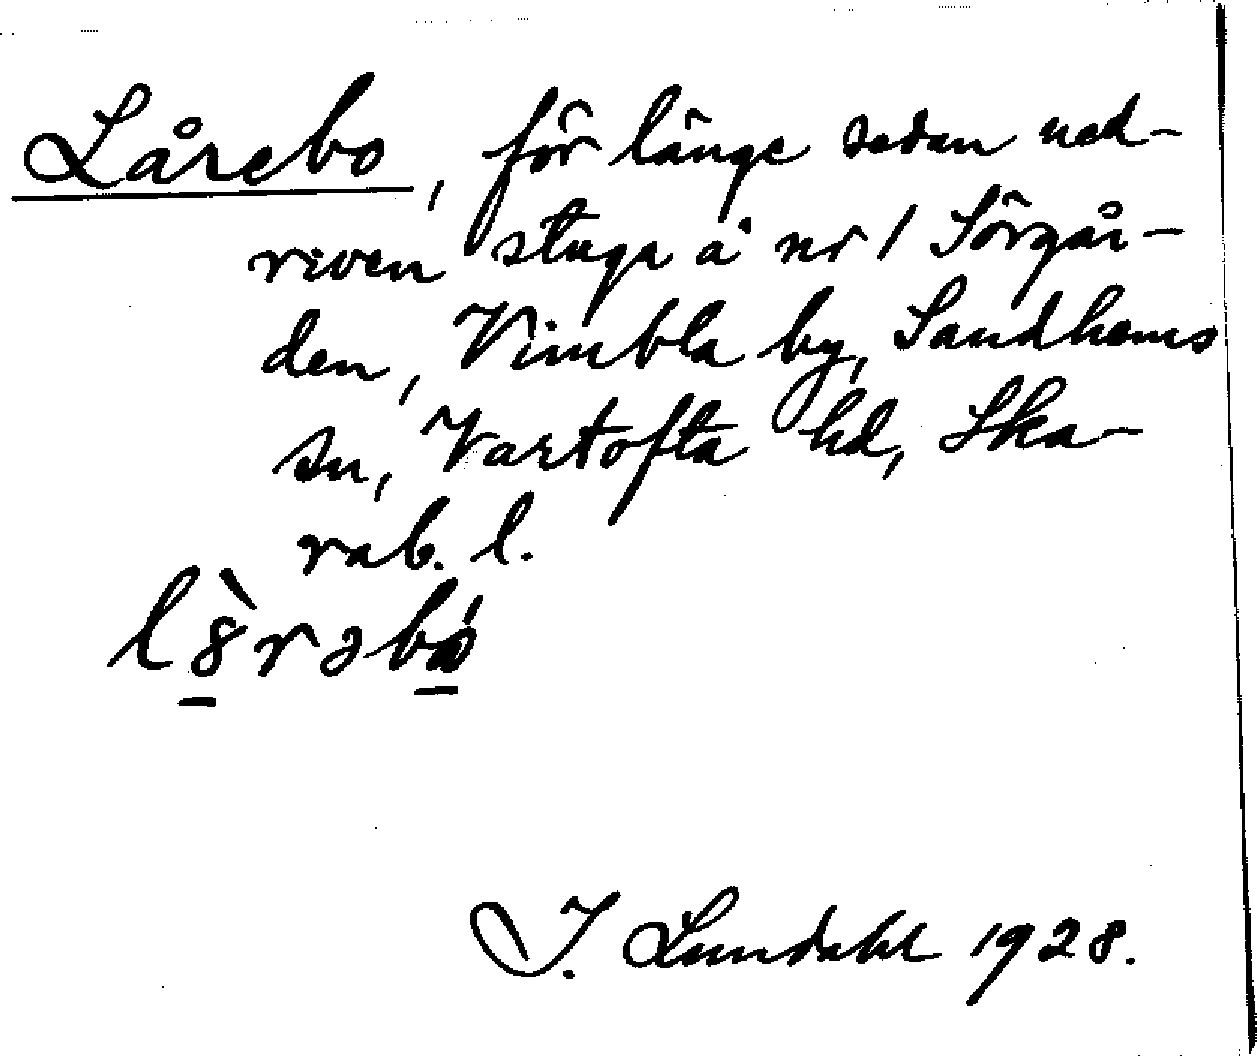 Lårebo, för länge sedan ned-
riven stuga å nr 1 Sörgår-
den, Vimbla by, Sandhems
sn, Vartofta hd, Ska-
rab. l.
l8̀rəbó
J. Lundahl 1928.